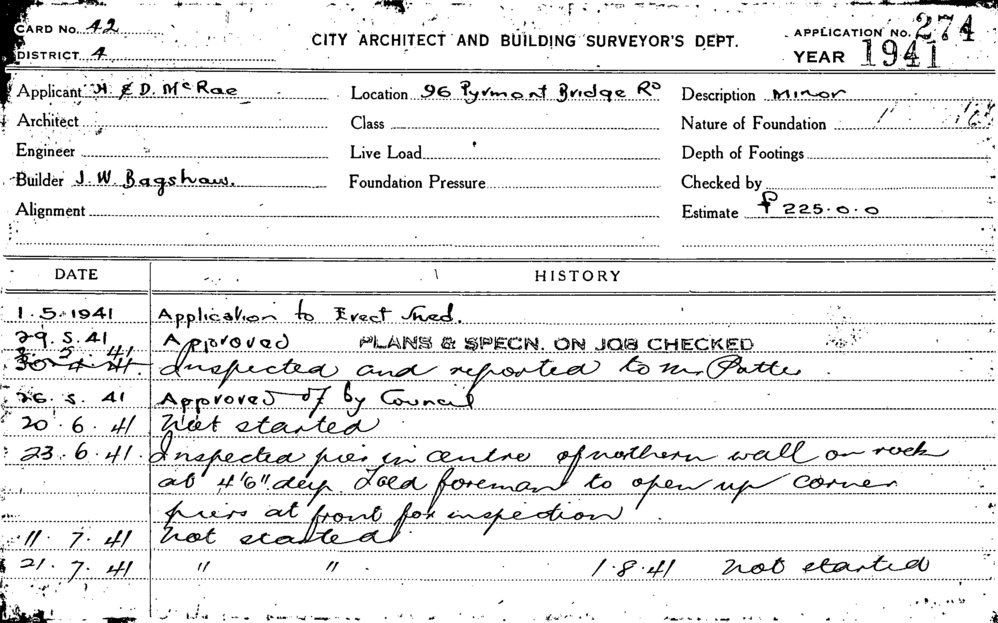 CARD No. 42
DISTRICT 4
CITY ARCHITECT AND BUILDING SURVEYOR'S DEPT.
APPLICATION No. 274
YEAR 1941
Applicant H. & D. McRae Location 96 Pyrmont Bridge Rd Description Minor
Architect Class Nature of Foundation
Engineer Live Load Depth of Footings
Builder J. W. Bagshaw. Foundation Pressure Checked by
Alignment Estimate £ 225.0.0
DATE HISTORY
1.5.1941 Application to Erect Shed.
29.5.41 Approved PLANS & SPECN. ON JOB CHECKED
41 Inspected and reported to Mr
26.5.41 Approved of by Council
20.6.41 Not started
23.6.41 Inspected pier in centre of northern wall on rock
at 4'6" deep Told foreman to open up corner
piers at front for inspection
11.7.41 Not started
21.7.41 " " 1.8.41 Not started